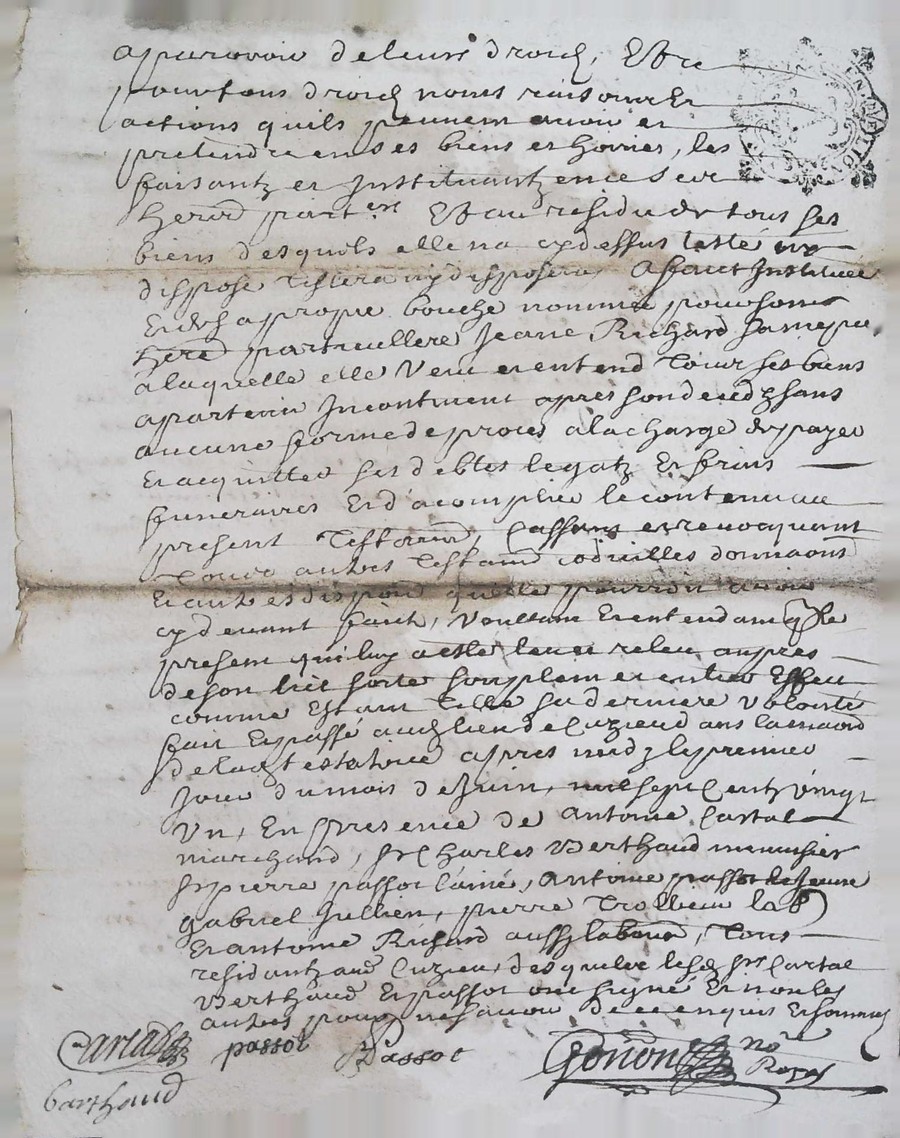 aparavoir de leurs droicts, Et ce
pour tous droicts noms raisons Et
actions quils peuvent avoir et
pretendre en ses biens et hoiries, les
faisantz et Instituantz en ce
herers part.eres Et au residu de tous ses
biens desquels elle na cy dessus testé ny
disposé testera ny disposera A fait Institué
Et de sa propre bouche nommé pour son
here particullere Jeane Richard sa niepce
a laquelle elle Veut et entend tous ses biens
apartenir Incontinent apres son decedz sans
aucune forme de proces a la charge de payer
Et acquitter ses debtes legatz Et frais
funeraires Et d'acomplir le contenu au
present Testam, Cassant et revocquant
Tous autres Testam codicilles donnaons
Et autres dispons quelle pourroit avoir
cy devant fait, Voullant Et entendant q le
present qui luy a esté leu et releu aupres
de son lict sorte son plein et entier Effect
comme Estant Telle sa derniere Volonté
fait Et passé audt lieu de Cuzieu dans la maison
de ladt testatrice apres midy le premier
Jour du mois de Juin, mil sept Centz vingt
Un, En presence de Antoine Cartal
marchand, sr Charles Berthaud menusier
sr pierre passot l'ainé, Antoine passot le Jeune
gabriel Jullien, pierre Trollieu lab
Et antoine Richard aussy labour, Tous
residantz aud Cuzieu, desquels lesd srs Cartal
Berthaud Et passot ont signé Et non les
autres pour ne scavoir de ce enquis Et sommés
Cartal passot Passot Gonon nore
Royal
barthaud